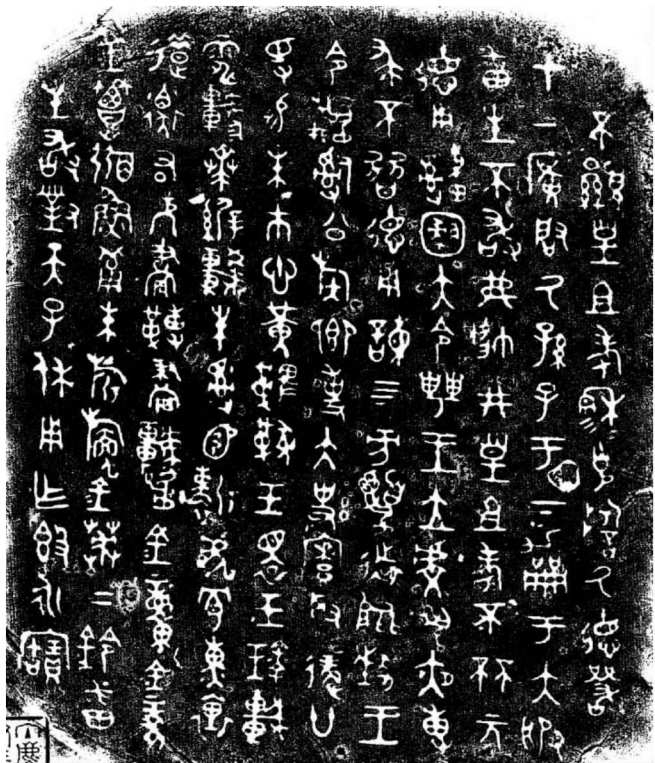 不顯皇且考穆=克誓氒德嚴
才上廣啟氒孫子于下擢于大服
番生不敢弗帥井皇且考不杯元
德用圝大令屏王立虔夙夜尃
求不朁德用諫四方柔遠能王
令公族卿事大史寮取徵廿
寽易朱巿恩黃鞞玉睘玉琮車
電軫較朱靳虎冟熏裏
錯衡右厄畫轉畫金童金豙
金簟弼魚葡朱旂旜金枋二鈴番
生敢對天子休用乍簋永寶